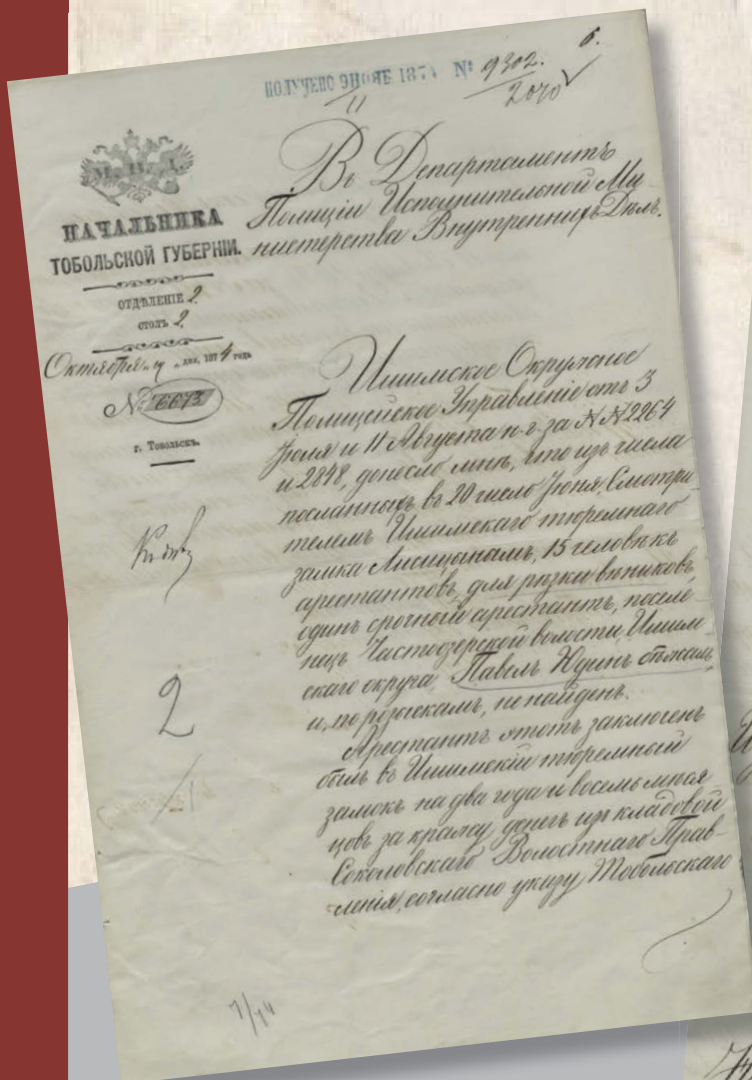 ПОЛУЧЕНО 9 НОЯБ 1874 № 9302.
2070
11
6.
М. В. Д.
НАЧАЛЬНИКА
ТОБОЛЬСКОЙ ГУБЕРНІИ.
ОТДѢЛЕНІЕ 2
СТОЛЪ 2
Октября 19 дня, 1874 года
№ 6673
г. Тобольскъ.
Въ Департаментъ
Полиціи Исполнительной Ми-
нистерства Внутреннихъ Дѣлъ.
Ишимское Окружное
Полицейское Управленіе отъ 3
Іюля и 11 Августа н. г. за №№ 2264
и 2848, донесло мнѣ, что изъ числа
посланныхъ въ 20 число Іюня, Смотри-
телемъ Ишимскаго тюремнаго
замка Лисицынамъ, 15 человѣкъ
арестантовъ, для рѣзки вѣниковъ,
одинъ срочный арестантъ, поселе-
нецъ Частоозерской волости, Ишим-
скаго округа, Павелъ Юдинъ бѣжалъ
и, по розыскамъ, не найденъ.
Арестантъ этотъ заключенъ
былъ въ Ишимскій тюремный
замокъ на два года и восемь мѣся-
цовъ за кражу денегъ изъ кладовой
Соколовскаго Волостнаго Прав-
ленія, согласно указу Тобольскаго
2
7/74